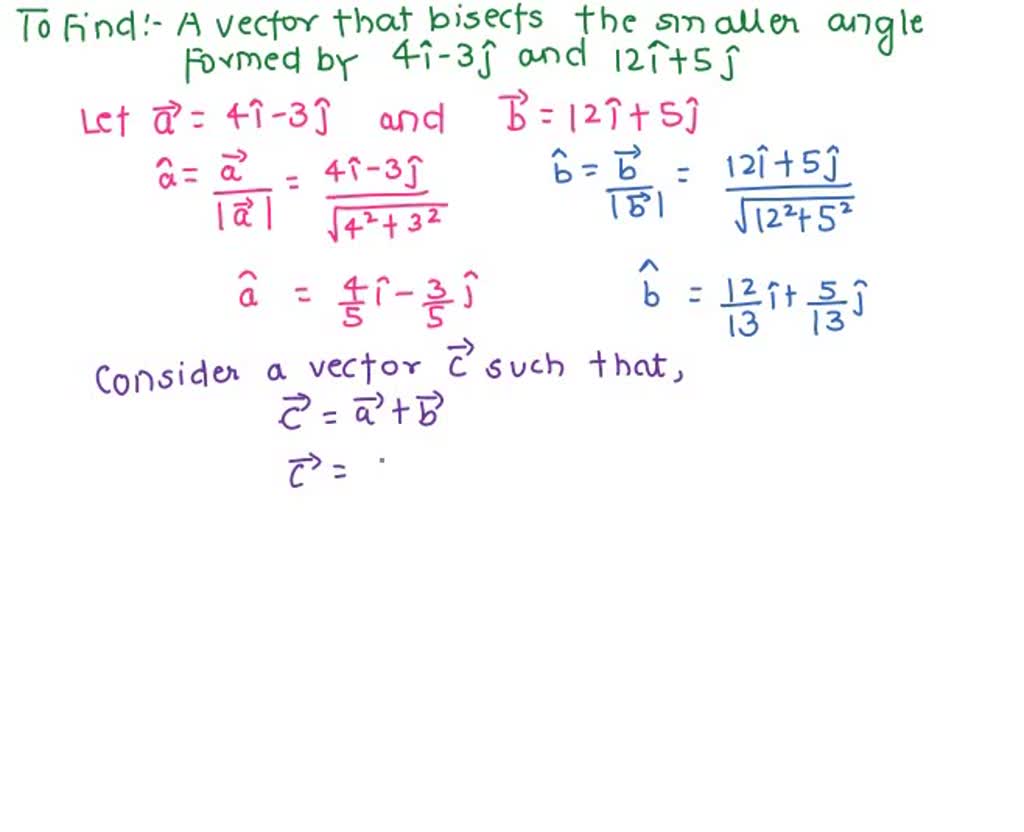 To Find:- A vector that bisects the smaller angle
Formed by 4î-3ĵ and 12î+5ĵ
Let a⃗ = 4î-3ĵ and b⃗ = 12î+5ĵ
â = a⃗/|a⃗| = (4î-3ĵ)/√(4²+3²) b̂ = b⃗/|b⃗| = (12î+5ĵ)/√(12²+5²)
â = 4/5 î - 3/5 ĵ b̂ = 12/13 î + 5/13 ĵ
Consider a vector c⃗ such that,
c⃗ = a⃗ + b⃗
c⃗ =